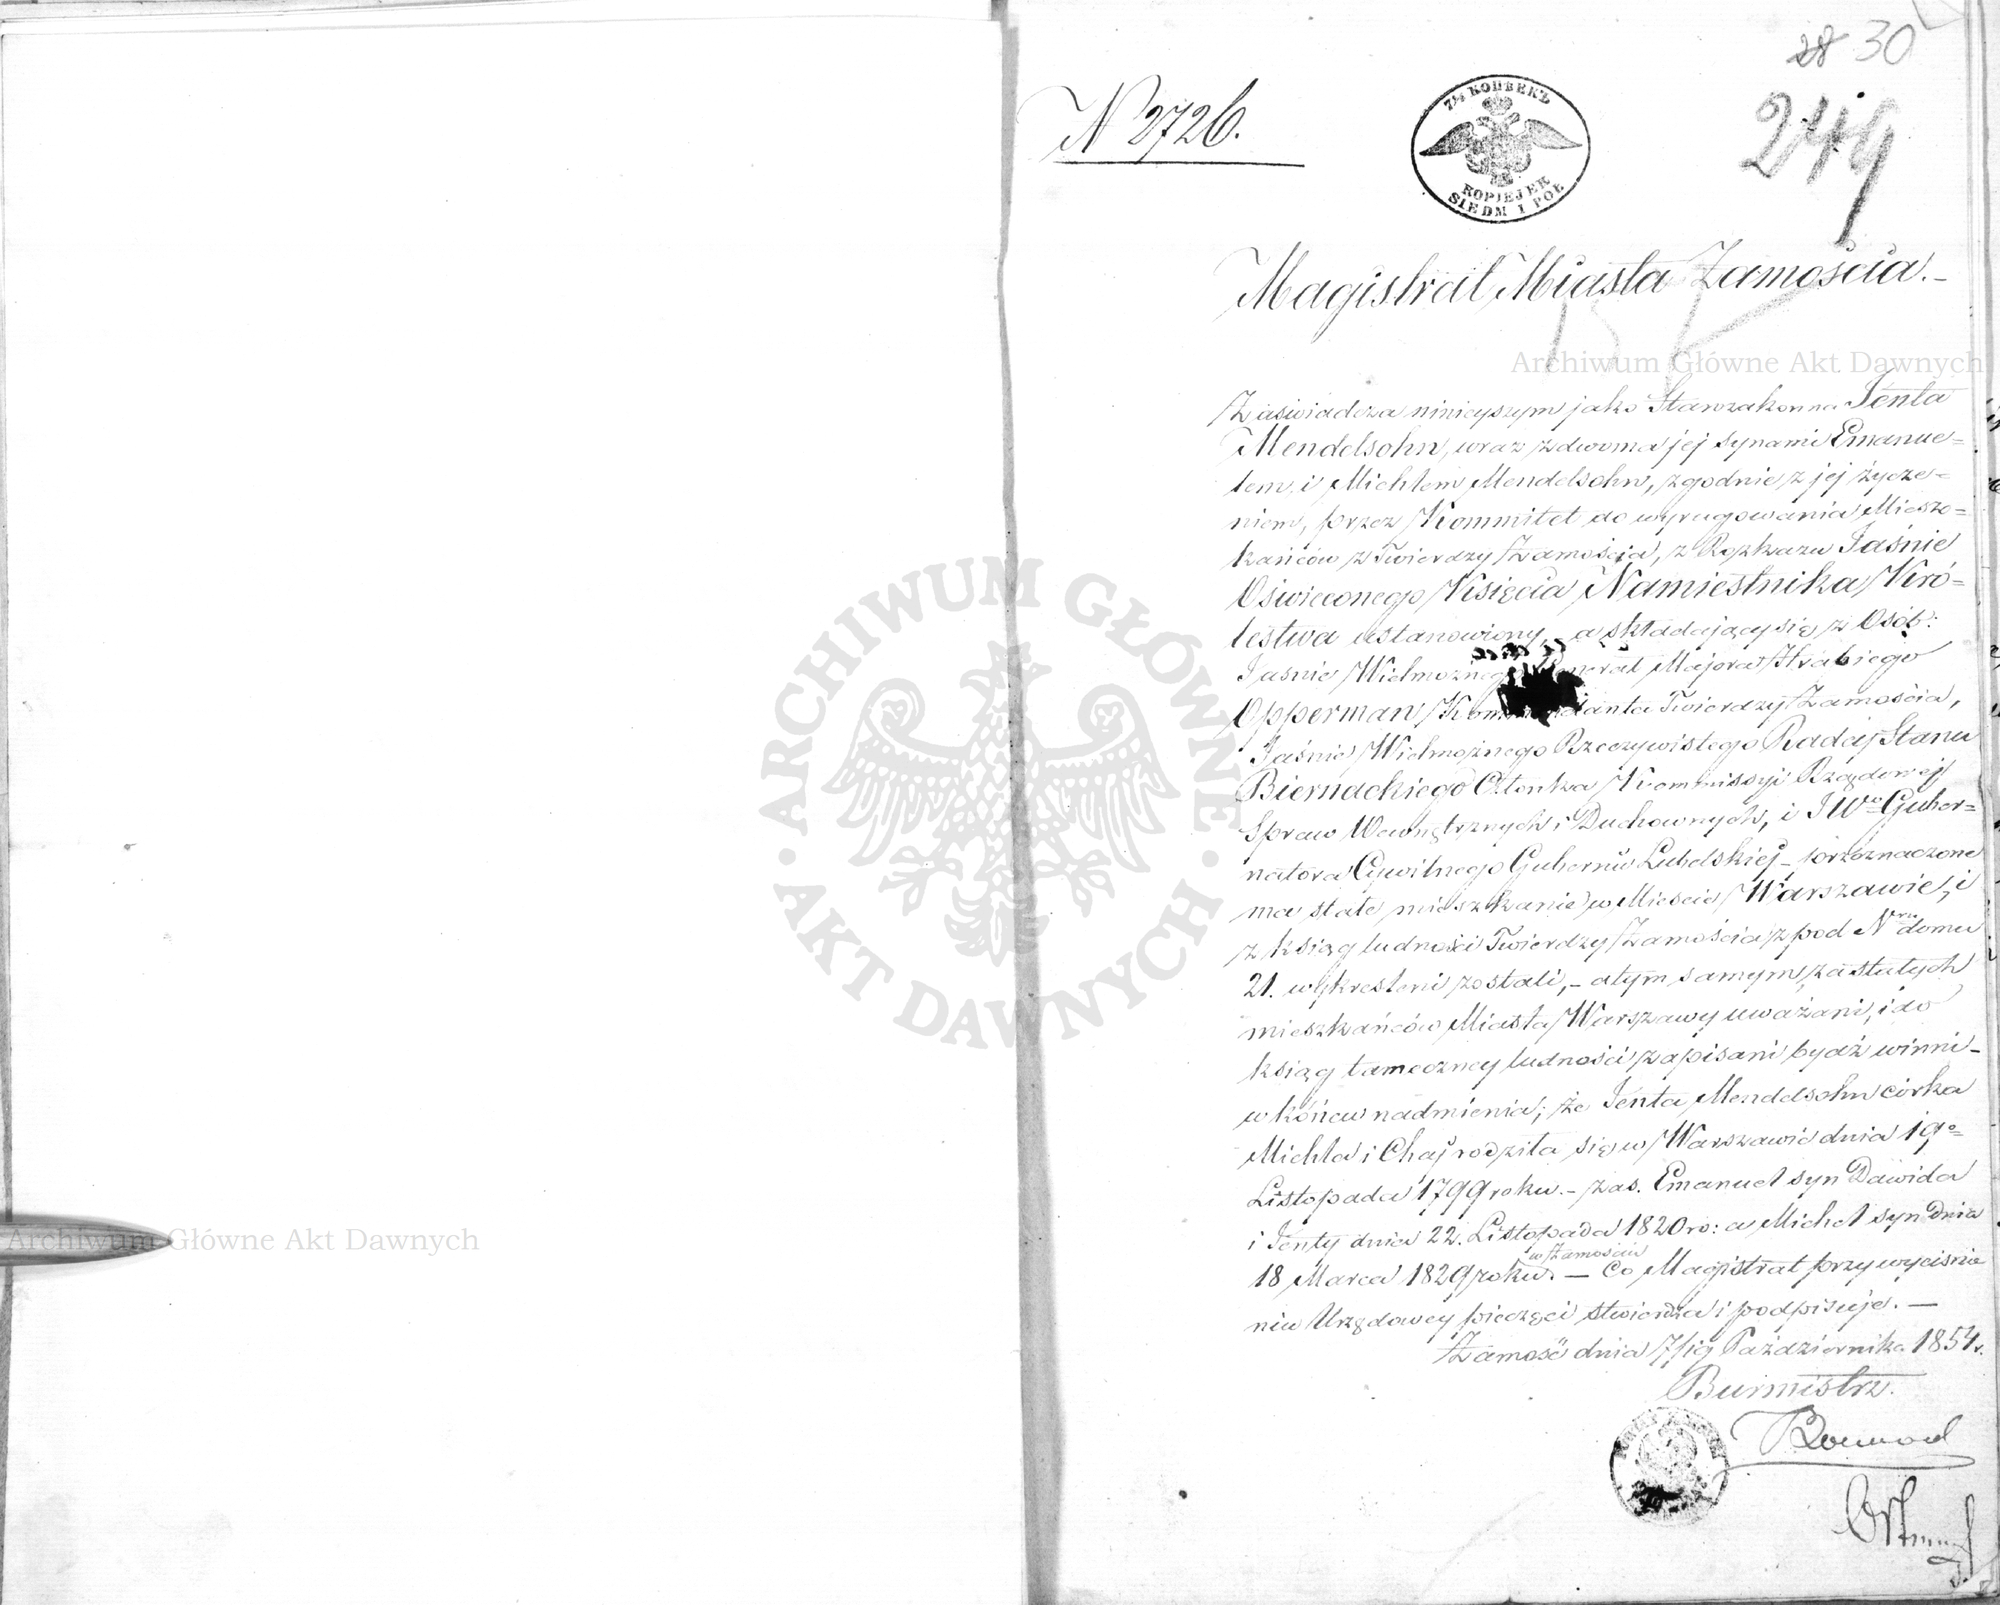 28 30
N 2726.
7½ КОПѢЕКЪ
KOPIEJEK
SIEDM I PÓŁ
249
Magistrat Miasta Zamościa.-
Archiwum Główne Akt Dawnych
Zaświadcza niniejszym jako Starozakonna Jenta
Mendelsohn, wraz z dwoma jej synami Emanue=
lem i Michlem Mendelsohn, zgodnie z jej życze=
niem, przez Kommitet do wyrugowania Miesz=
kańców z Twierdzy Zamościa, z Rozkazu Jaśnie
Oświeconego Księcia Namiestnika Kró=
lestwa ustanowiony, - a składający się z Osób:
Jaśnie Wielmożnego Generał Majora Hrabiego
Opperman Kommendanta Twierdzy Zamościa,
Jaśnie Wielmożnego Rzeczywistego Radcy Stanu
Biernackiego Członka Kommissyi Rządowej
Spraw Wewnętrznych i Duchownych, i JWo Guber=
natora Cywilnego Gubernii Lubelskiej - przeznaczone
ma stałe mieszkanie w Mieście Warszawie, i
z ksiąg ludności Twierdzy Zamościa z pod Nru domu
21. wykreśleni zostali, - a tym samym za stałych
mieszkańców Miasta Warszawy uważani, i do
ksiąg tameczney ludności zapisani bydź winni -
w końcu nadmienia; że Jenta Mendelsohn córka
Michla i Chaj rodziła się w Warszawie dnia 19o
Listopada 1799 roku. - zaś. Emanuel syn Dawida
i Jenty dnia 22. Listopada 1820 ro: a Michel syn Dnia
w Zamościu
18 Marca 1829 roku. — Co Magistrat przy wyciśnie
niu Urzędowey pieczęci stwierdza i podpisuje. —
Zamość dnia 7/19 Października 1854 r.
Burmistrz.
ARCHIWUM GŁÓWNE
AKT DAWNYCH
Archiwum Główne Akt Dawnych